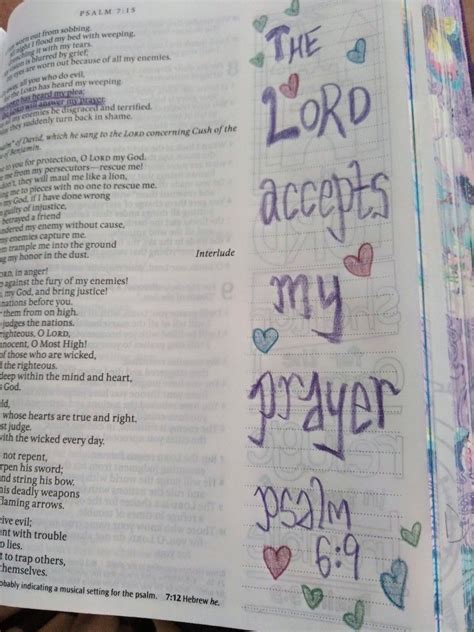 PSALM 7:15
worn out from sobbing.
night I flood my bed with weeping,
drenching it with my tears.
vision is blurred by grief;
eyes are worn out because of all my enemies.
away, all you who do evil,
the LORD has heard my weeping.
LORD has heard my plea;
LORD will answer my prayer.
my enemies be disgraced and terrified.
they suddenly turn back in shame.
of David, which he sang to the LORD concerning Cush of the
of Benjamin.
to you for protection, O LORD my God.
me from my persecutors—rescue me!
don't, they will maul me like a lion,
ing me to pieces with no one to rescue me.
my God, if I have done wrong
guilty of injustice,
betrayed a friend
ndered my enemy without cause,
my enemies capture me.
em trample me into the ground
ag my honor in the dust.
Interlude
LORD, in anger!
against the fury of my enemies!
, my God, and bring justice!
nations before you.
them from on high.
judges the nations.
righteous, O LORD,
nnocent, O Most High!
of those who are wicked,
the righteous.
deep within the mind and heart,
God.
whose hearts are true and right.
st judge.
with the wicked every day.
not repent,
rpen his sword;
and string his bow.
his deadly weapons
flaming arrows.
ive evil;
nt with trouble
lies.
to trap others,
themselves.
obably indicating a musical setting for the psalm. 7:12 Hebrew he.
THE
LORD
accepts
my
prayer
psalm
6:9